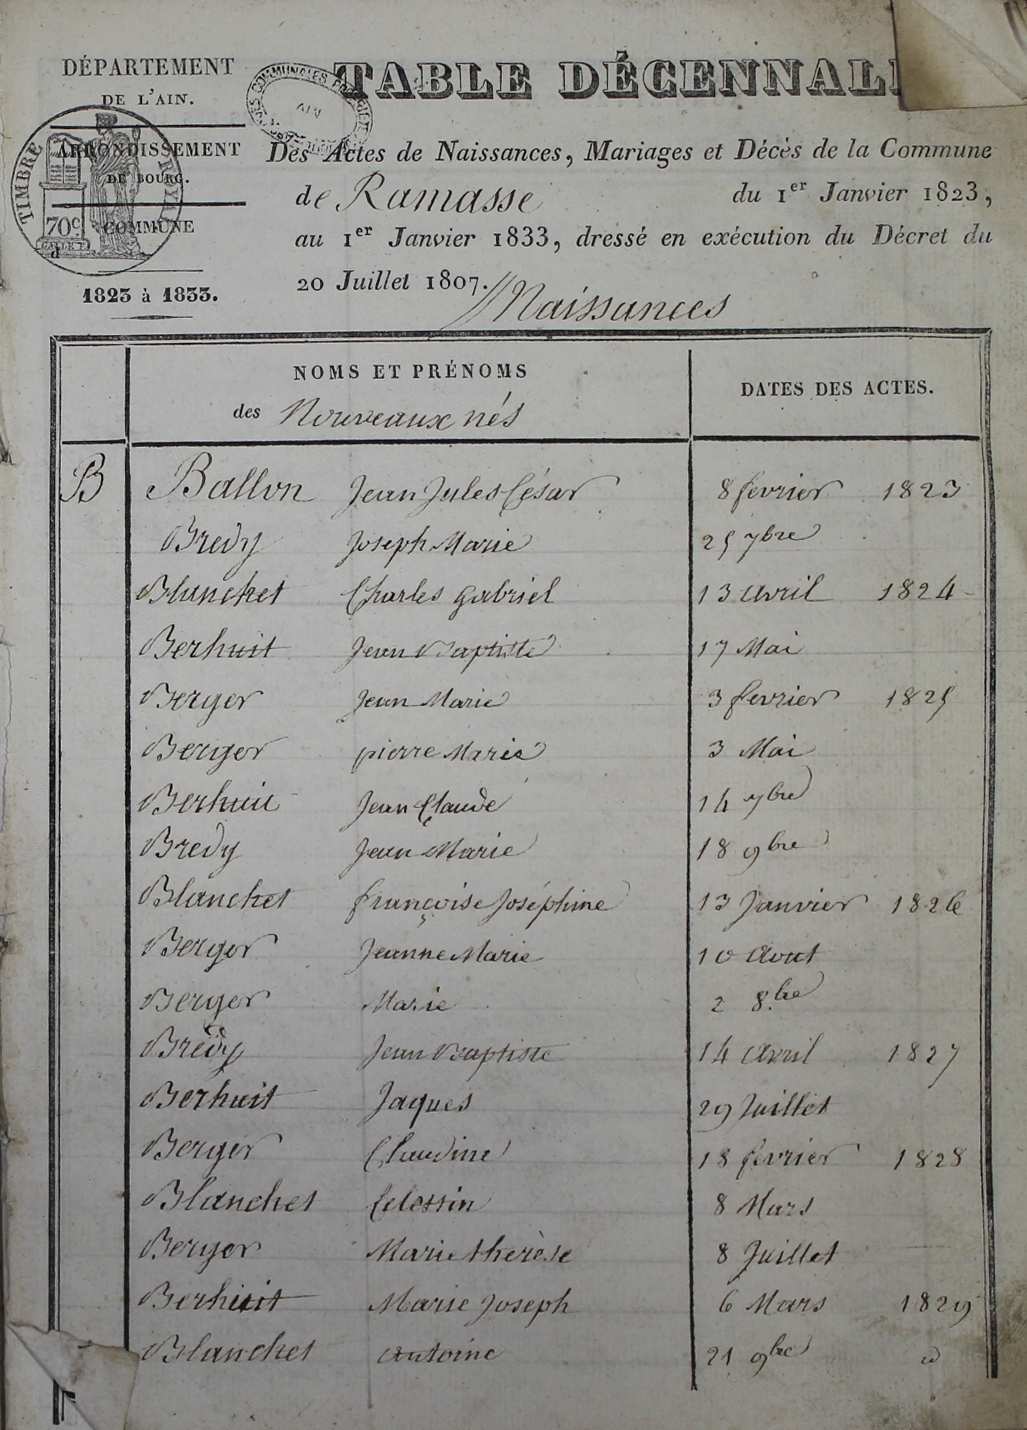 DÉPARTEMENT
DE L'AIN.
ARRONDISSEMENT
DE BOURG.
COMMUNE
d
1823 à 1833.
TIMBRE ROYAL
70c
TABLE DÉCENNAL
Des Actes de Naissances, Mariages et Décès de la Commune
de Ramasse du 1er Janvier 1823,
au 1er Janvier 1833, dressé en exécution du Décret du
20 Juillet 1807.
Naissances
NOMS ET PRÉNOMS
des Nouveaux nés
DATES DES ACTES.
B Ballon Jean Jules César 8 fevrier 1823
Bredy Joseph Marie 25 7bre
Blanchet Charles gabriel 13 avril 1824
Berhuit Jean Baptiste 17 Mai
Berger Jean Marie 3 fevrier 1825
Berger pierre Marie 3 Mai
Berhuit Jean Claude 14 7bre
Bredy Jean Marie 18 9bre
Blanchet françoise Joséphine 13 Janvier 1826
Berger Jeanne Marie 10 Aout
Berger Marie 2 8bre
Bredy Jean Baptiste 14 avril 1827
Berhuit Jaques 29 Juillet
Berger Claudine 18 fevrier 1828
Blanchet Celestin 8 Mars
Berger Marie therèse 8 Juillet
Berhuit Marie Joseph 6 Mars 1829
Blanchet antoine 21 9bre